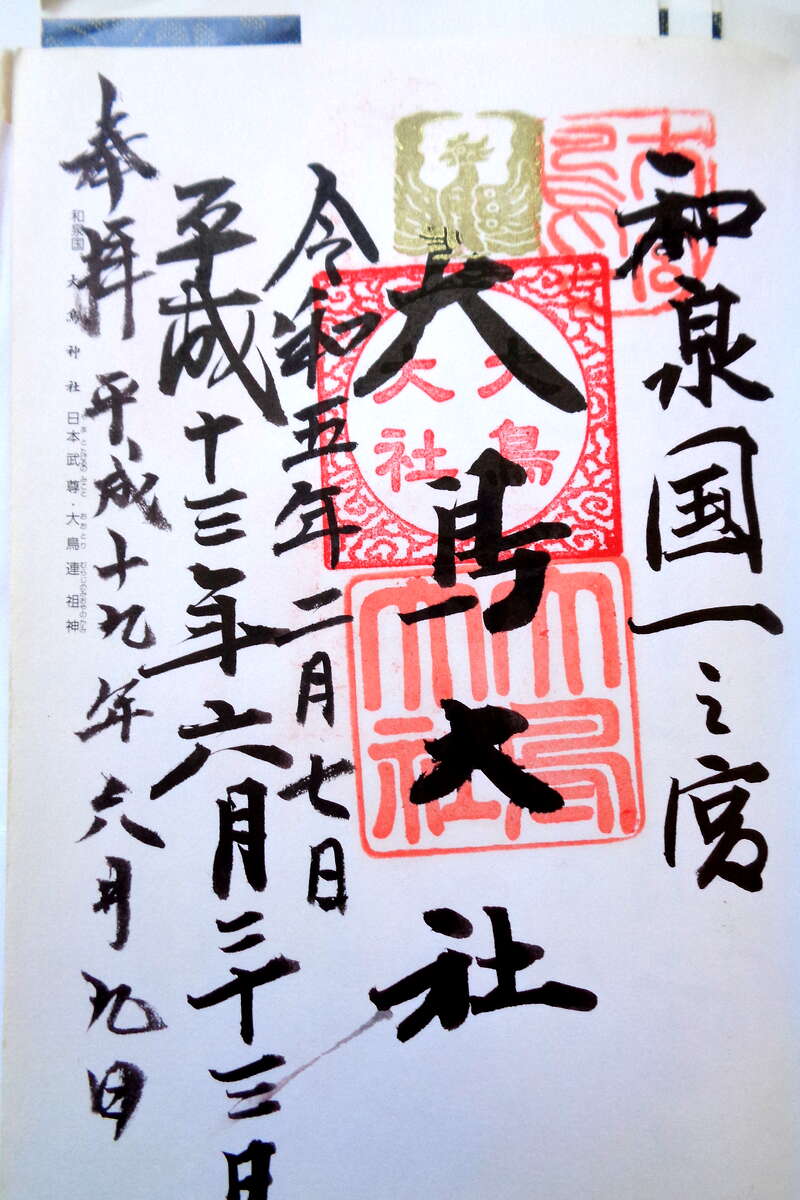 和泉国一之宮
大鳥大社
大鳥大社
大鳥大社
令和五年二月七日
平成十三年六月二十三日
奉拝 平成十九年六月九日
和泉国 大鳥神社 日本武尊・大鳥連祖神